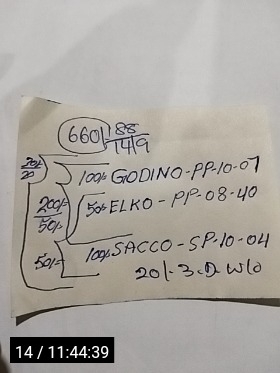 660/- 88
1419
20/-
20
100/- GODINO-PP-10-07
200/- 50/- ELKO-PP-08-40
50/-
50/- 100/- SACCO-SP-10-04
20/- 3.D W/O
14 / 11:44:39